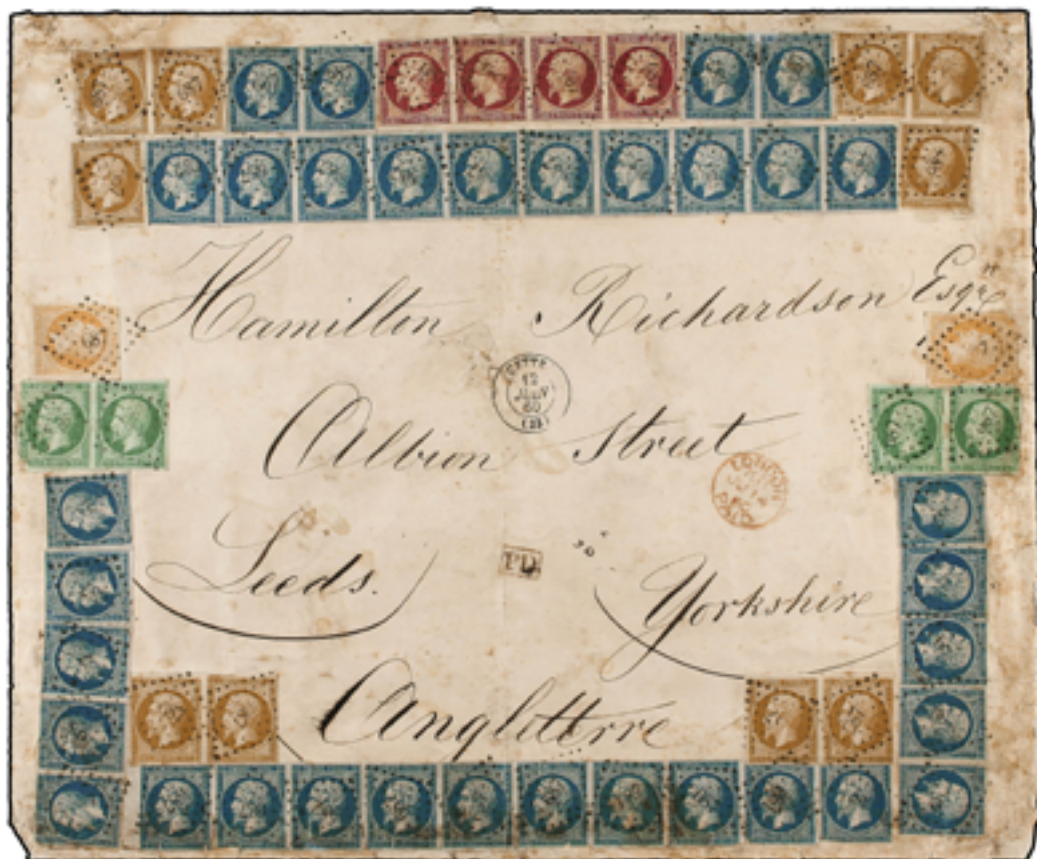 Hamilton Richardson Esqre
CETTE
12
JANV
60
(33)
Albion Street
LONDON
PAID
Leeds.
PD
Yorkshire
Angleterre